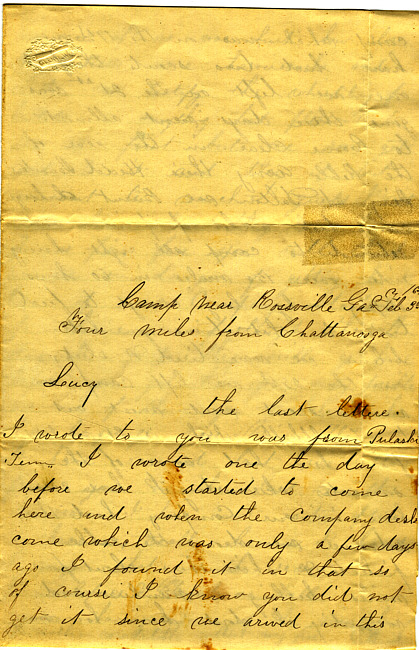 Camp near Rossville Ga Feb
Four miles from Chattanooga
Lucy
the last lettere
I wrote to you was from Pulaski
Tenn I wrote one the day
before we started to come
here and when the Company desk
come which was only a few days
ago I found it in that so
of course I know you did not
get it since we arived in this